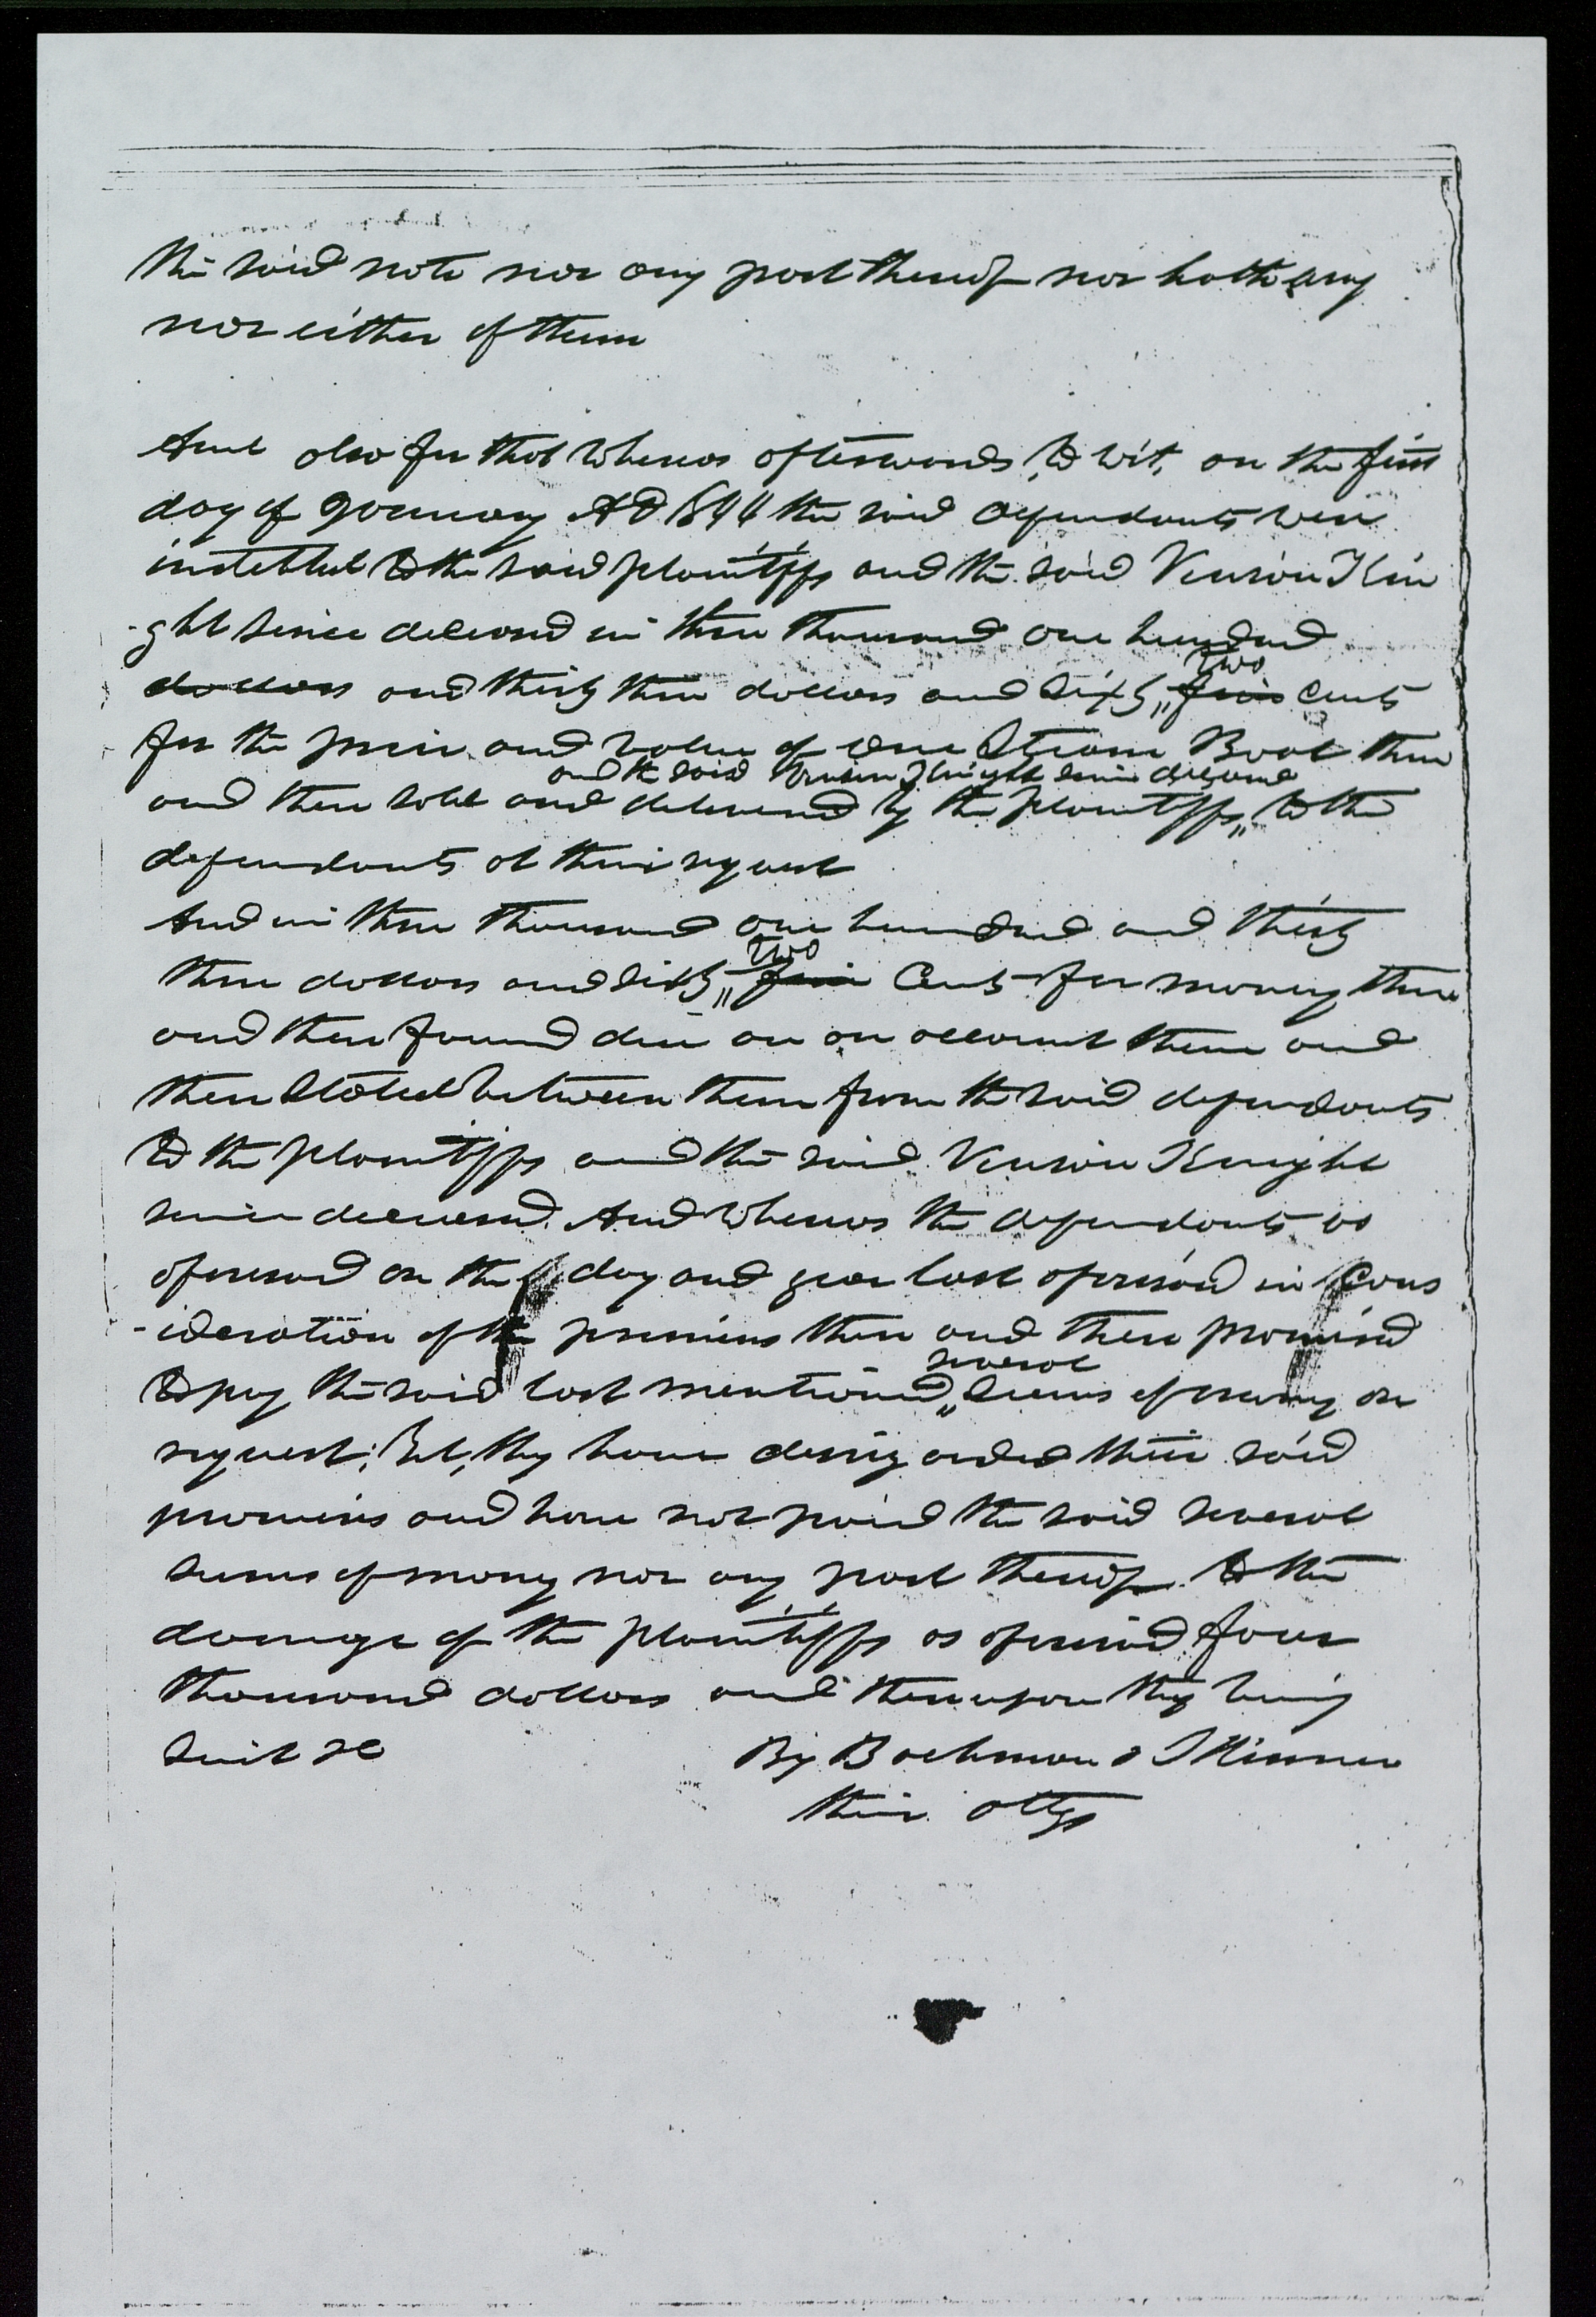 the said note nor any part thereof nor hath any
nor either of them
And also for that whereas afterwards, to wit, on the first
day of January AD 1844 the said defendants were
indebted to the said plaintiffs and the said Vinson Kni
-ght since deceased in three thousand one hundred
dollars and thirty three dollars and sixty,, five cents
two
for the price and value of one Steam Boat then
and the said Vinson Knight since deceased
and there sold and delivered by the plaintiffs,, to the
defendants at their request
And in three thousand one hundred and thirty
two
three dollars and sixty,, five Cents for money there
and then found due on an account there and
then stated between them from the said defendants
to the plaintiffs and the said Vinson Knight
since deceased. And whereas the defendants as
aforesaid on the day and year last aforesaid in Cons
-ideration of the premises then and there promised
several
to pay the said last mentioned,, sums of money on
request; Yet, they have disregarded their said
promises and have not paid the said several
sums of money nor any part thereof. To the
damage of the plaintiffs as aforesaid four
thousand dollars and thereupon they bring
suit &c
By Bachman & Skinner
their attys